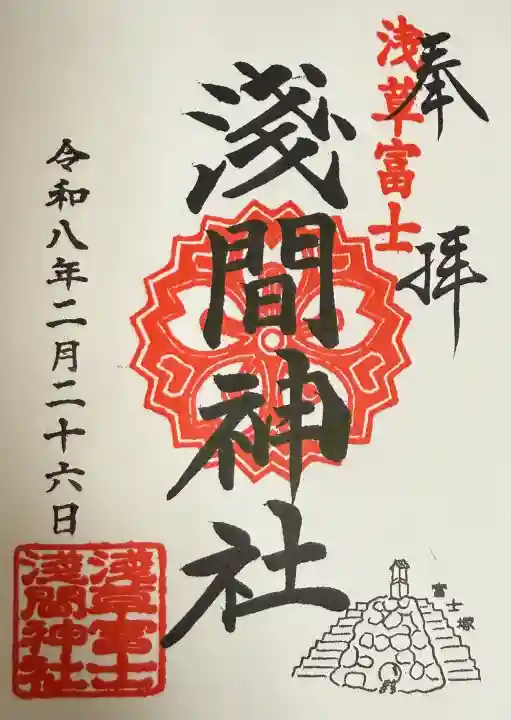 奉拝
浅草富士
淺間神社
令和八年二月二十六日
淺草富士
淺間神社
富士塚